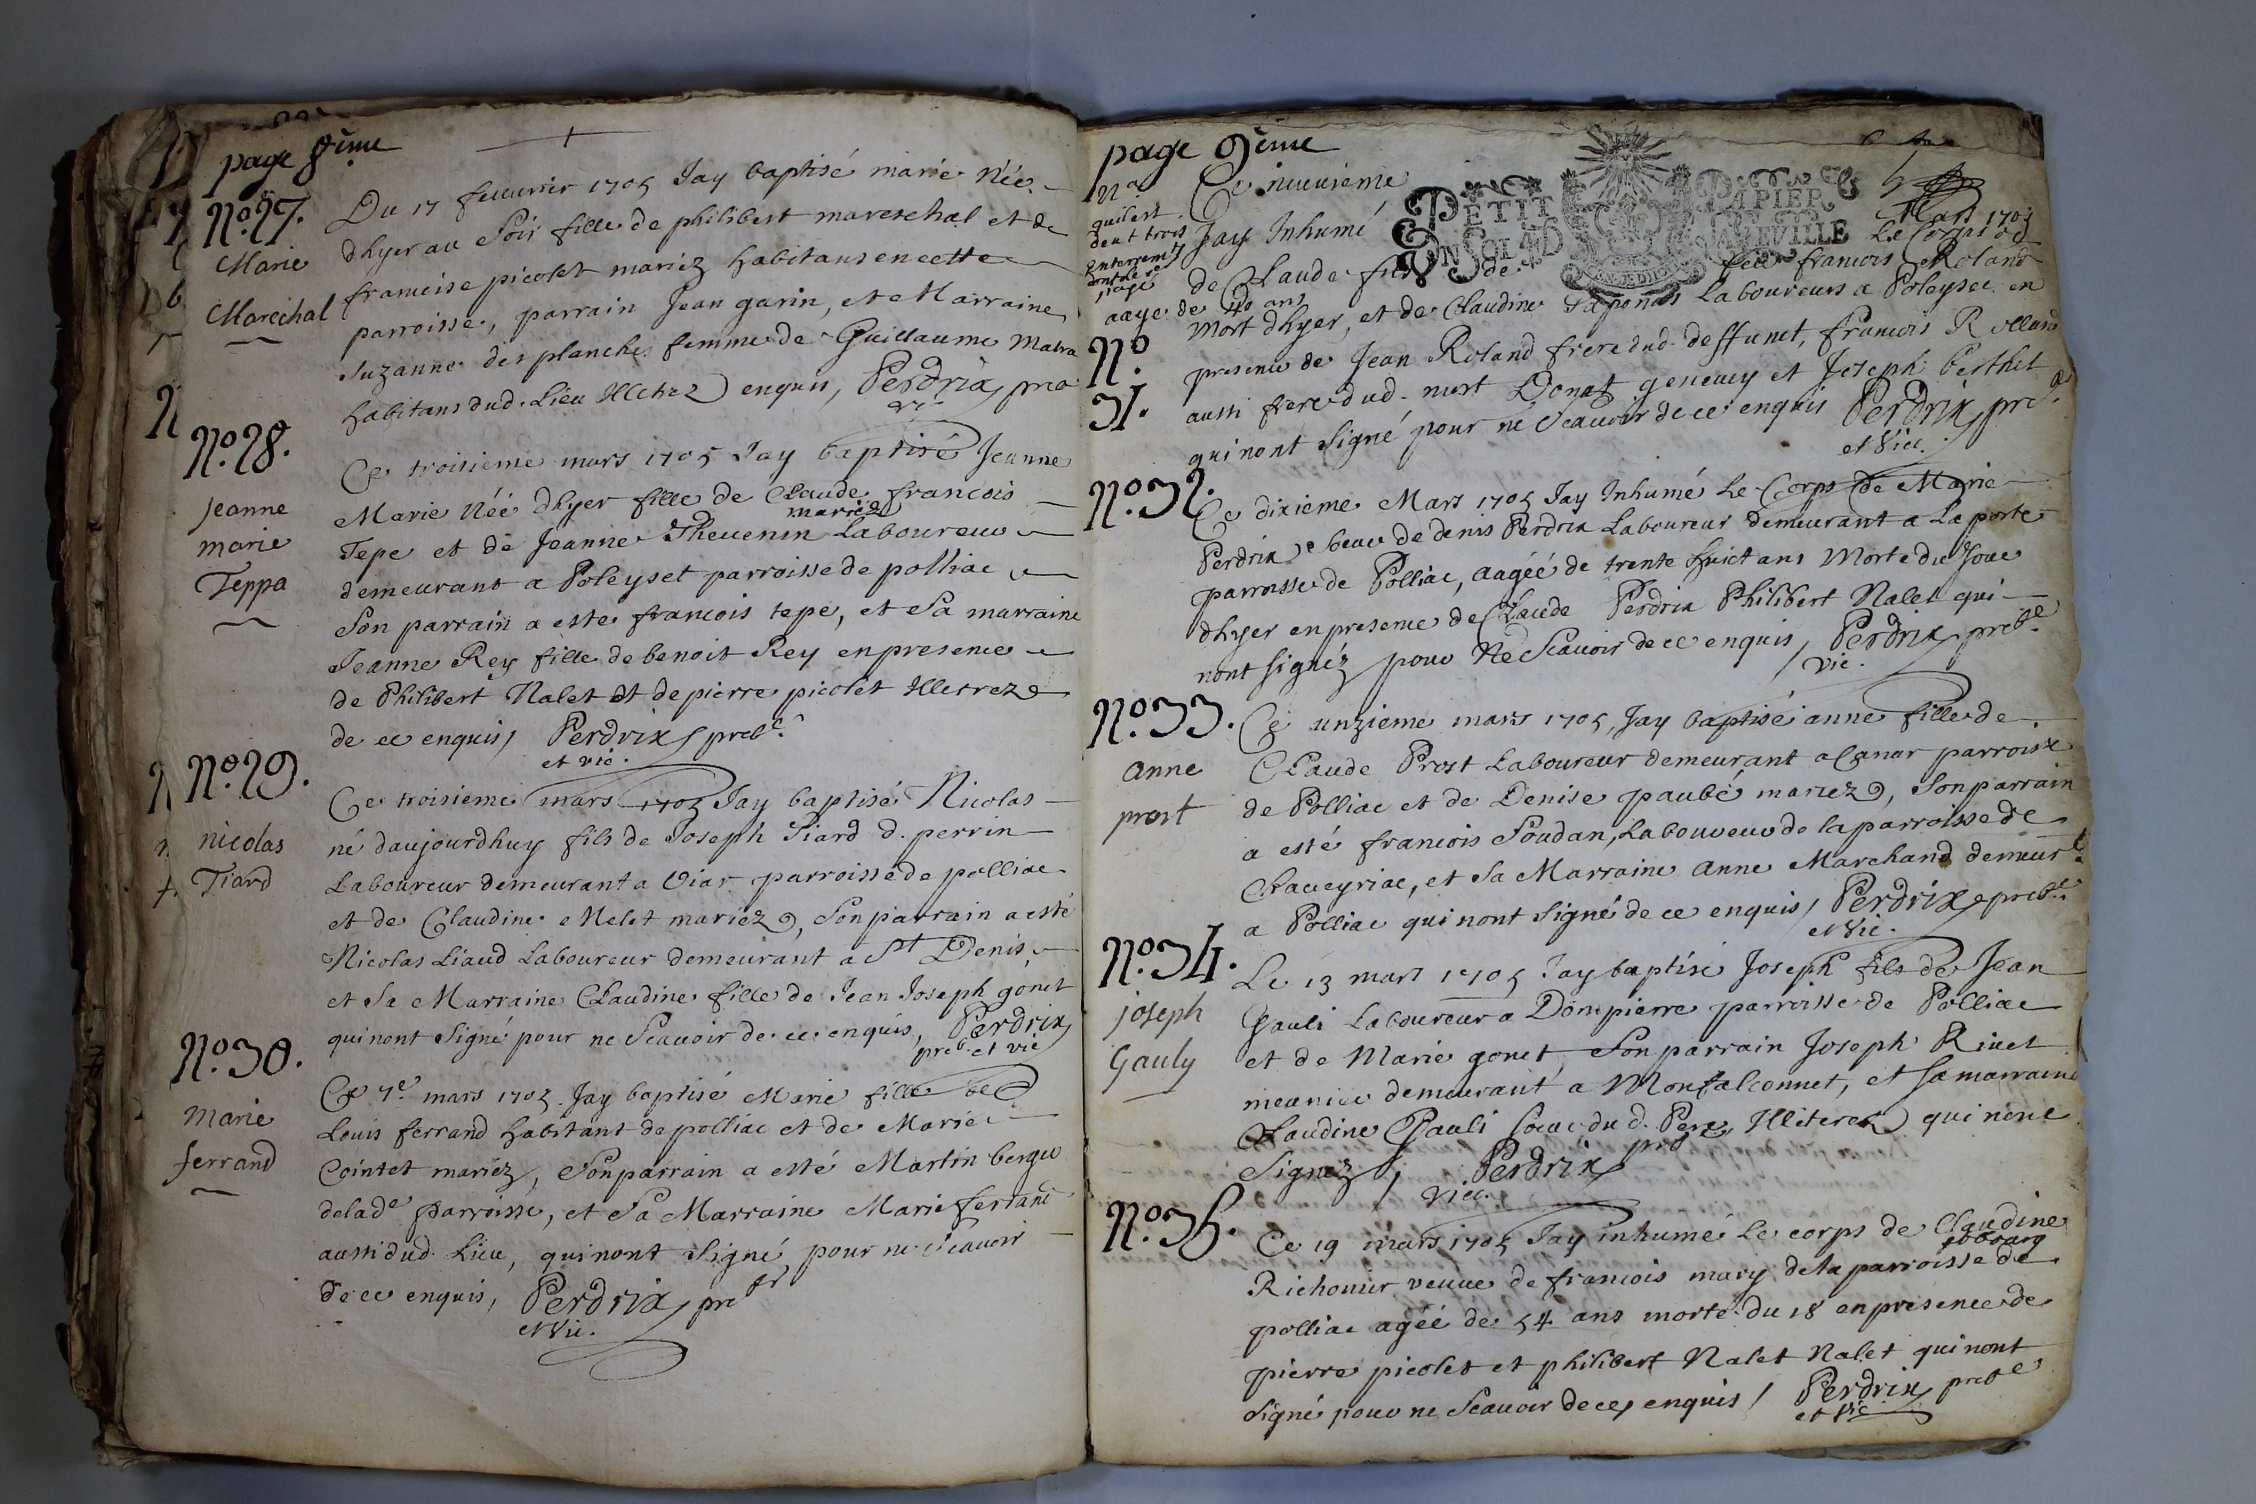 page 8ème
No 27.
Marie
Marechal
Du 17 feuurier 1705 Jay baptisé marie Née
dhyer au Soir fille de philibert mareschal et de
francoise picolet mariez habitans en cette
parroisse, parrain Jean garin, et Marraine
Suzanne des planche femme de Guillaume
habitans dud. Lieu enquis, Perdrix
No 28.
Jeanne
marie
Teppa
Ce troisieme mars 1705 Jay baptisé Jeanne
Marie Néé dhyer fille de Claude francois
mariez
Tepe et de Jeanne Theuenin Laboureur
demeurant a Poleyset parroisse de polliac
Son parrain a este francois tepe, et Sa marraine
Jeanne Rey fille de benoit Rey en presence
de Philibert Nalet et de pierre picolet Illetrez
de ce enquis, Perdrix prebe.
et vic.
No 29.
nicolas
Tiard
Ce troisieme mars 1705 Jay baptisé Nicolas
né daujourdhuy fils de Joseph Tiard d. perrin
Laboureur demeurant a Viar parroisse de polliac
et de Claudine Melet mariez, Son parrain a esté
Nicolas Liaud Laboureur demeurant a St Denis,
et Sa Marraine Claudine fille de Jean Joseph gonet
qui nont Signé pour ne Scauoir de ce enquis, Perdrix
preb. et vic
No 30.
Marie
ferrand
Ce 7e. mars 1705 Jay baptisé Marie fille de
Louis ferrand habitant de polliac et de Marie
Cointet mariez, Son parrain a esté Martin
de lade parroisse, et Sa Marraine Marie ferrand
aussi dud. Lieu, qui nont Signé, pour ne Scauoir
de ce enquis, Perdrix pre
et vic.
page 9ème
Na
quil est
de et trois
Enterremts
dont le
page
No
31.
Ce niuuieme
PETIT PAPIER
UN SOL 4 D LA FEUILLE
Mars 1705
Jay Inhumé Le Corps de
de Claude fils de feu francois Roland
aage de 40 ans
mort dhyer, et de Claudine Laboureurs a Poleysec en
presence de Jean Roland frere dud. deffunct, francois Rolland
aussi frere dud. mort Donat geneuey et Joseph berthet
qui nont Signé pour ne Scauoir de ce enquis Perdrix pre
et Vicc.
No 32.
Ce dixieme Mars 1705 Jay Inhumé Le Corps de Marie
Perdrix de denis Perdrix Laboureur demeurant a La porte
parroisse de Polliac, aagéé de trente huict ans Morte du Jour
dhyer en presence de Claude Perdrix Philibert Nalet qui
nont Signéz pour Ne Scauoir de ce enquis, Perdrix prebe
vic.
No 33.
anne
prost
Ce unzieme mars 1705, Jay baptisé anne fille de
Claude Prost Laboureur demeurant a Canar parroisse
de Polliac et de Denise paubé mariez, Son parrain
a esté francois Soudan, Laboureur de la parroisse de
Chaueyriac, et Sa Marraine Anne Marchand demeurt.
a Polliac qui nont Signé de ce enquis, Perdrix prebe.
et Vic.
No 34.
joseph
Gauly
Le 13 mars 1705 Jay baptisé Joseph fils de Jean
Gauli Laboureur a Dompierre parroisse de Polliac
et de Marie gonet, Son parrain Joseph Riuet
meunier demeurant a Monfalconnet, et Sa marraine
Claudine Gauli Soeur du d. Pere, Illiterez qui nont
Signez, Perdrix pre
Vicc.
No 35.
Ce 19 mars 1705 Jay inhumé Le corps de Claudine
Richonier veuue de francois mary de la parroisse de
polliac agéé de 54 ans morte du 18 en presence de
pierre picolet et philibert Nalet Nalet qui nont
Signé pour ne Scauoir de ce enquis, Perdrix prebe
et Vic.